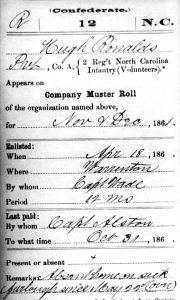 (Confederate.)
R 12 N.C.
Hugh Ronalds
Pvt, Co. A, { 2 Reg't North Carolina Infantry (Volunteers).*
Appears on
Company Muster Roll
of the organization named above,
for Nov & Dec, 1861.
Enlisted:
When Apr 18, 186 .
Where Warrenton
By whom Capt Wade
Period 12 mo
Last paid:
By whom Capt Alston
To what time Oct 31, 186 .
Present or absent
Remarks: Absent home on sick
furlough since Nov 22